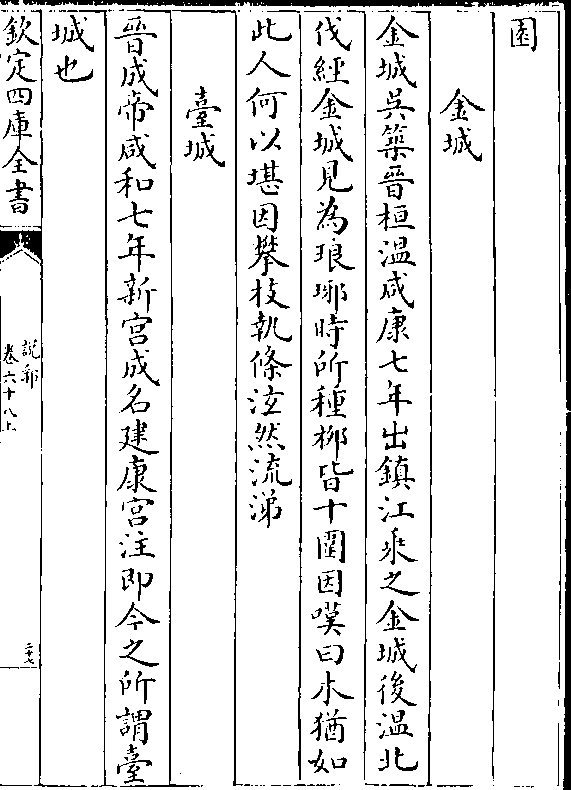 園
金城
金城吳築晉桓溫咸康七年出鎮江乘之金城後溫北
伐經金城見為琅琊時所種柳皆十圍因嘆曰木猶如
此人何以堪因攀枝執條泫然流涕
臺城
晉成帝咸和七年新宮成名建康宮注即今之所謂臺
城也
欽定四庫全書
說郛
卷六十八上
二十七